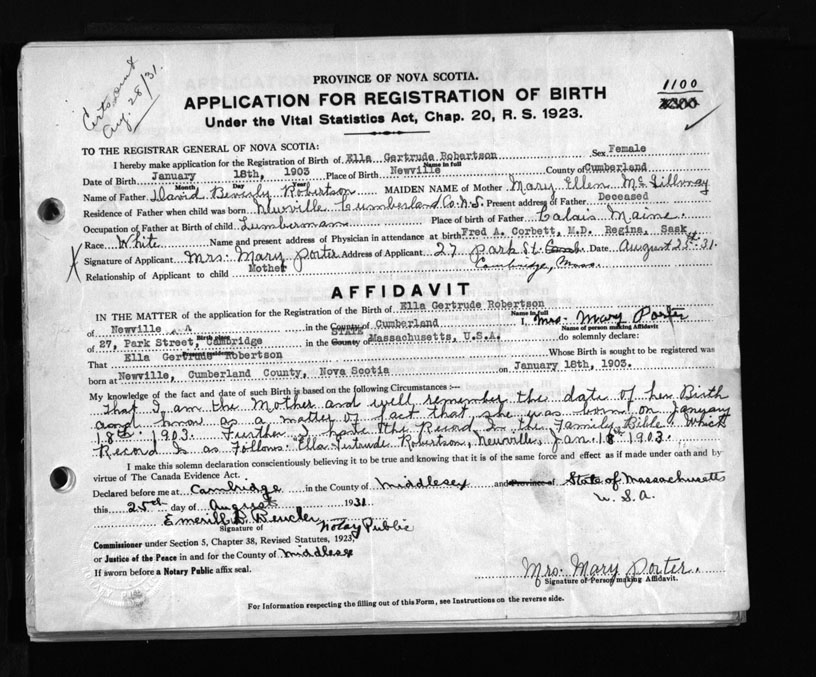 Certs sent
Aug. 28/31.
PROVINCE OF NOVA SCOTIA.
1100
APPLICATION FOR REGISTRATION OF BIRTH
Under the Vital Statistics Act, Chap. 20, R. S. 1923.
TO THE REGISTRAR GENERAL OF NOVA SCOTIA:
I hereby make application for the Registration of Birth of Ella Gertrude Robertson Sex Female
Name in full
Date of Birth January 18th, 1903 Place of Birth Newville County of Cumberland
Month Day Year
Name of Father David Beverly Robertson MAIDEN NAME of Mother Mary Ellen McGillvray
Residence of Father when child was born Newville Cumberland Co. N.S. Present address of Father Deceased
Occupation of Father at Birth of child Lumberman Place of birth of Father Calais Maine.
Race White Name and present address of Physician in attendance at birth Fred A. Corbett, M.D. Regina, Sask
X Signature of Applicant Mrs. Mary Porter Address of Applicant 27 Park St. Date August 25st 31.
Cambridge, Mass.
Relationship of Applicant to child Mother
AFFIDAVIT
IN THE MATTER of the application for the Registration of the Birth of Ella Gertrude Robertson
Name in full
of Newville , A in the County of Cumberland I, Mrs. Mary Porter
Birth place STATE Name of person making Affidavit
of 27, Park Street, Cambridge in the County of Massachusetts, U.S.A. do solemnly declare:
That Ella Gertrude Robertson Whose Birth is sought to be registered was
born at Newville, Cumberland County, Nova Scotia on January 18th, 1903.
My knowledge of the fact and date of such Birth is based on the following Circumstances :—
That I am the Mother and well remember the date of her Birth
and know as a matter of fact that she was born on January
18th 1903. Further I have the Record in the Family Bible which
Record Is as Follows: "Ella Gertrude Robertson, Newville, Jan. 18th 1903.
I make this solemn declaration conscientiously believing it to be true and knowing that it is of the same force and effect as if made under oath and by
virtue of The Canada Evidence Act.
Declared before me at Cambridge in the County of Middlesex and Province of State of Massachusetts
this 25th day of August 1931 U. S. A.
Notary Public
Signature of
Commissioner under Section 5, Chapter 38, Revised Statutes, 1923,
or Justice of the Peace in and for the County of Middlesex
If sworn before a Notary Public affix seal.
Mrs. Mary Porter.
Signature of Person making Affidavit.
For Information respecting the filling out of this Form, see Instructions on the reverse side.